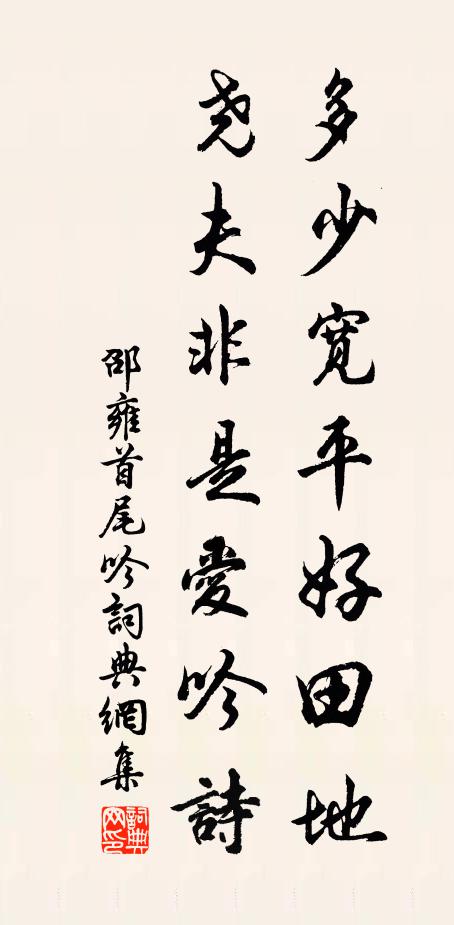 多少寬平好田地
尧夫非是愛吟詩
邵雍首尾吟詞典網集
詞典網印